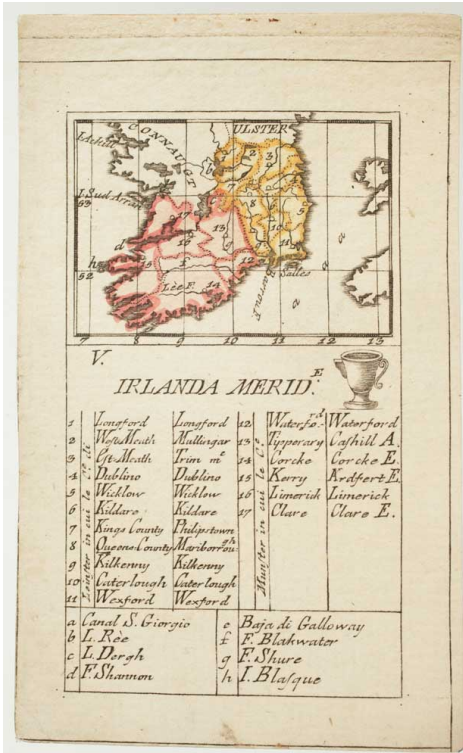 CONNAUGT
ULSTER
I. Sud Arran
Lèe F.
Saltes
7 8 9 10 11 12 13
V.
IRLANDA MERID.E
Leinster in cui le C.e di
1 Longford Longford
2 West Meath Mullingar
3 Est Meath Trim m.e
4 Dublino Dublino
5 Wicklow Wicklow
6 Kildare Kildare
7 Kings County Philipstown
8 Queens County Mariborrough
9 Kilkenny Kilkenny
10 Caterlough Caterlough
11 Wexford Wexford
Munster in cui le C.e
12 Waterfo.rd Waterford
13 Tipperary Cashill A.
14 Corcke Corcke E.
15 Kerry Ardfert E.
16 Limerick Limerick
17 Clare Clare E.
a Canal S. Giorgio
b L. Rèe
c L. Dergh
d F. Shannon
e Baja di Galloway
f F. Blakwater
g F. Shure
h I. Blasque